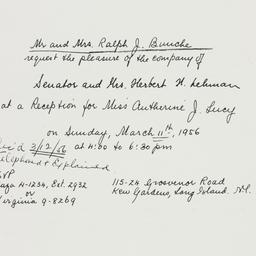 Mr and Mrs. Ralph J. Bunche
request the pleasure of the company of
Senator and Mrs. Herbert H. Lehman
at a Reception for Miss Autherine J. Lucy
on Sunday, March 11th, 1956
3/12/56 at 4:00 to 6:30 pm
telephoned & Explained
115-24 Grosvenor Road
4-1234, Ext. 2932
Kew Gardens, Long Island. N.Y.
or
Virginia 9-8269